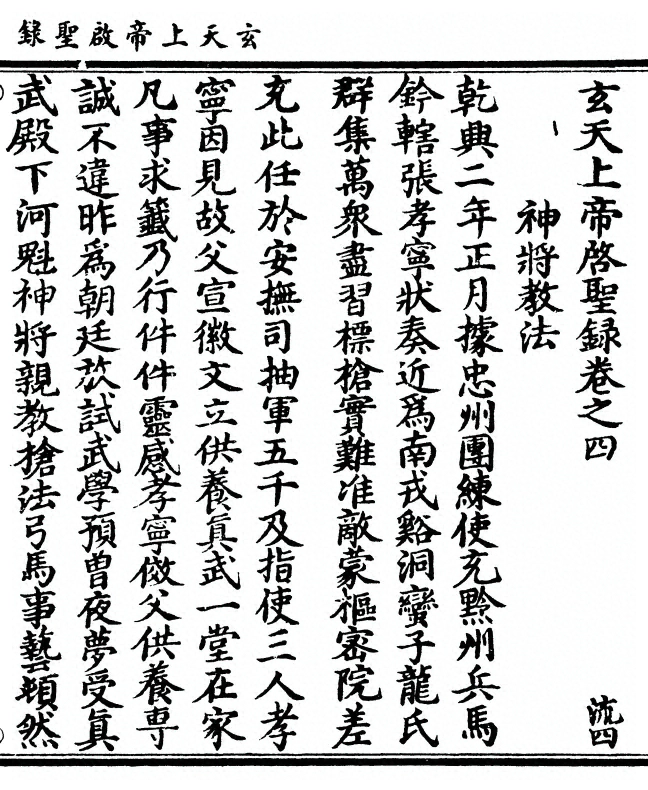 玄天上帝啟聖録
玄天上帝啓聖録卷之四
流四
神將教法
乾興二年正月據忠州團練使充黔州兵馬
鈐轄張孝寧狀奏近爲南戎谿洞蠻子龍氏
群集萬衆盡習標槍實難准敵蒙樞密院差
充此任於安撫司抽軍五千及指使三人孝
寧因見故父宣徽文立供養真武一堂在家
凡事求籤乃行件件靈感孝寧傚父供養専
誠不違昨爲朝廷於試武學預曽夜夢受真
武殿下河魁神將親教搶法弓馬事藝頓然